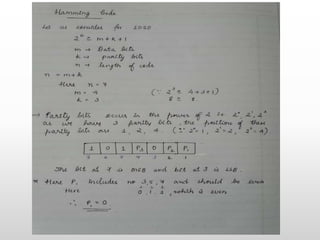 Hamming Code
Let us consider for 1010
2^k ≥ m+k+1
m → Data bits
k → parity bits
n → length of code
n = m+k
Here n = 7
m = 4 (∵ 2^3 ≥ 4+3+1)
k = 3 8 ≥ 8
→ Parity bits occur in the power of 2 i.e. 2^0, 2^1, 2^2
as we have 3 parity bits, the position of these
parity bits are 1, 2, 4. (∵ 2^0=1, 2^1=2, 2^2=4)
1 0 1 P4 0 P2 P1
7 6 5 4 3 2 1
The bit at 7 is MSB and bit at 3 is LSB.
* Here P1 includes no 3,5,7 and should be even
Here 0, 1, 1, which is even
∴ P1 = 0